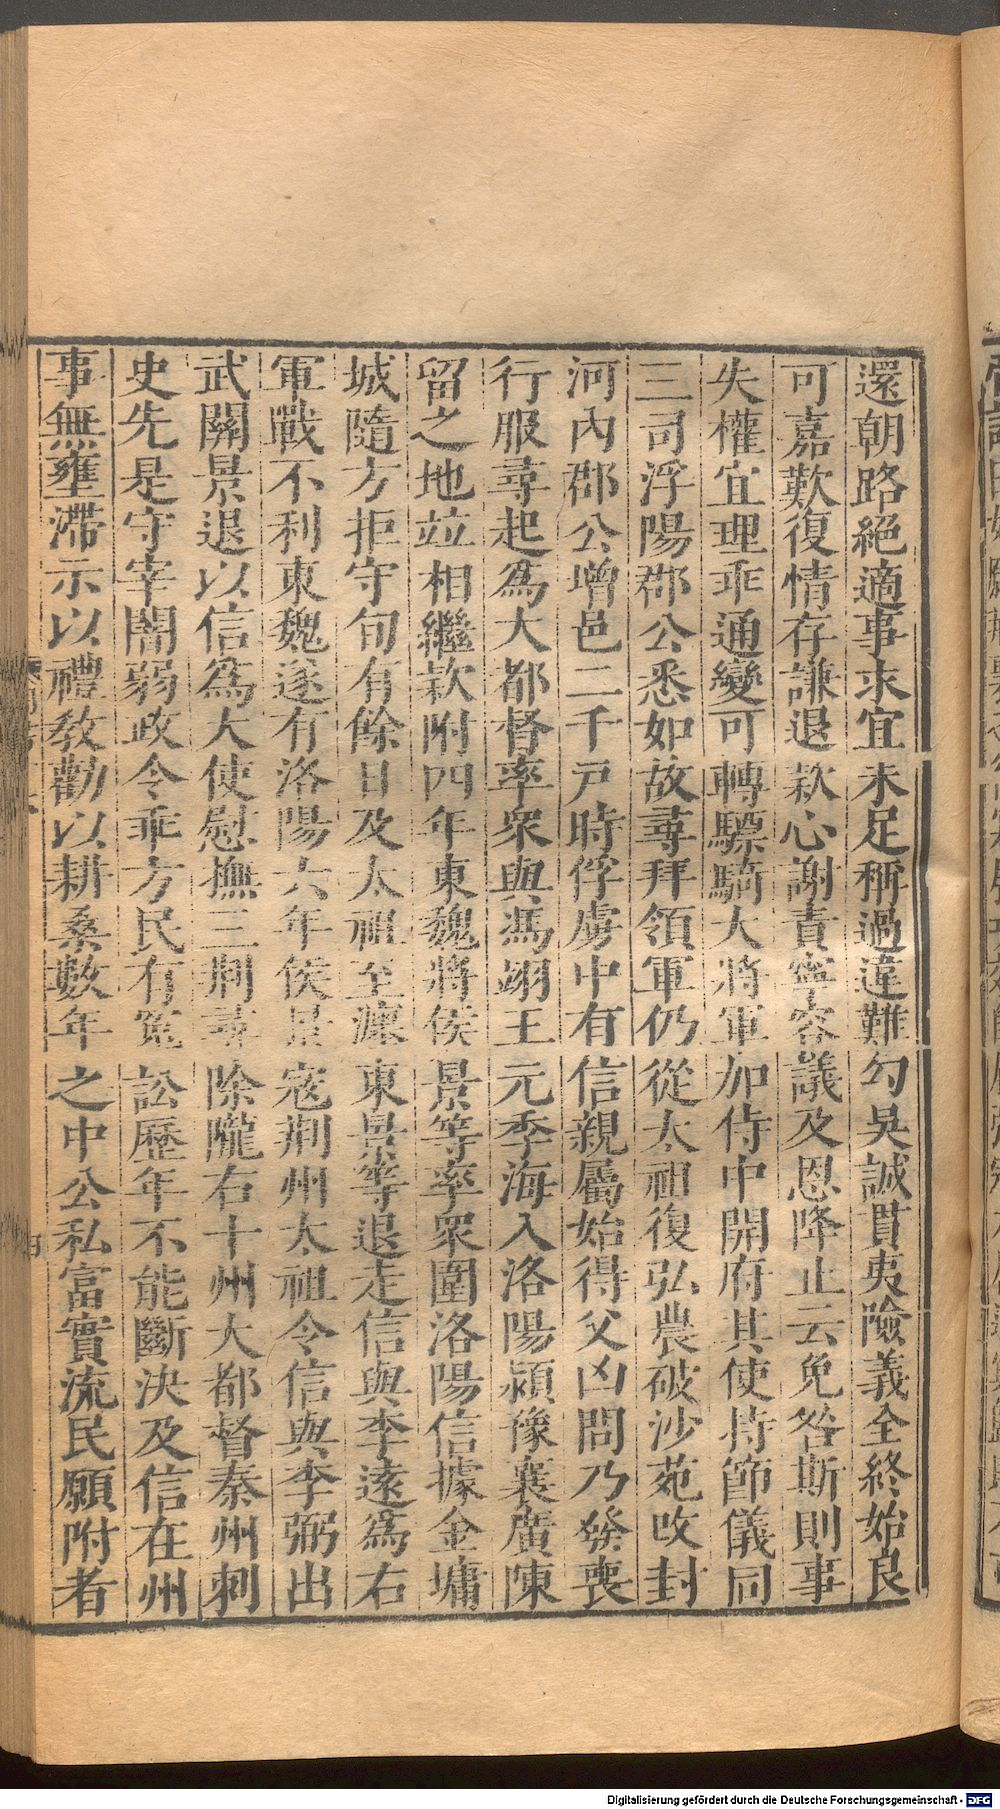 還朝路絕適事求宜未足稱過違難勾吳誠貫夷險義全終始良
可嘉歎復情存謙退款心謝責寧容議及恩降止云免咎斯則事
失權宜理乖通變可轉驃騎大將軍加侍中開府其使持節儀同
三司浮陽郡公悉如故尋拜領軍仍從太祖復弘農破沙苑改封
河內郡公增邑二千戸時俘虜中有信親屬始得父凶問乃發喪
行服尋起爲大都督率衆與馮翊王元季海入洛陽潁豫襄廣陳
留之地竝相繼款附四年東魏將侯景等率眾圍洛陽信據金墉
城隨方拒守旬有餘日及太祖至瀍東景等退走信與李遠爲右
軍戰不利東魏遂有洛陽六年侯景寇荆州太祖令信與李弼出
武關景退以信爲大使慰撫三荆尋除隴右十州大都督秦州刺
史先是守宰闇弱政令乖方民有冤訟歷年不能斷決及信在州
事無壅滯示以禮敎勸以耕桑數年之中公私富實流民願附者
Digitalisierung gefördert durch die Deutsche Forschungsgemeinschaft - DFG